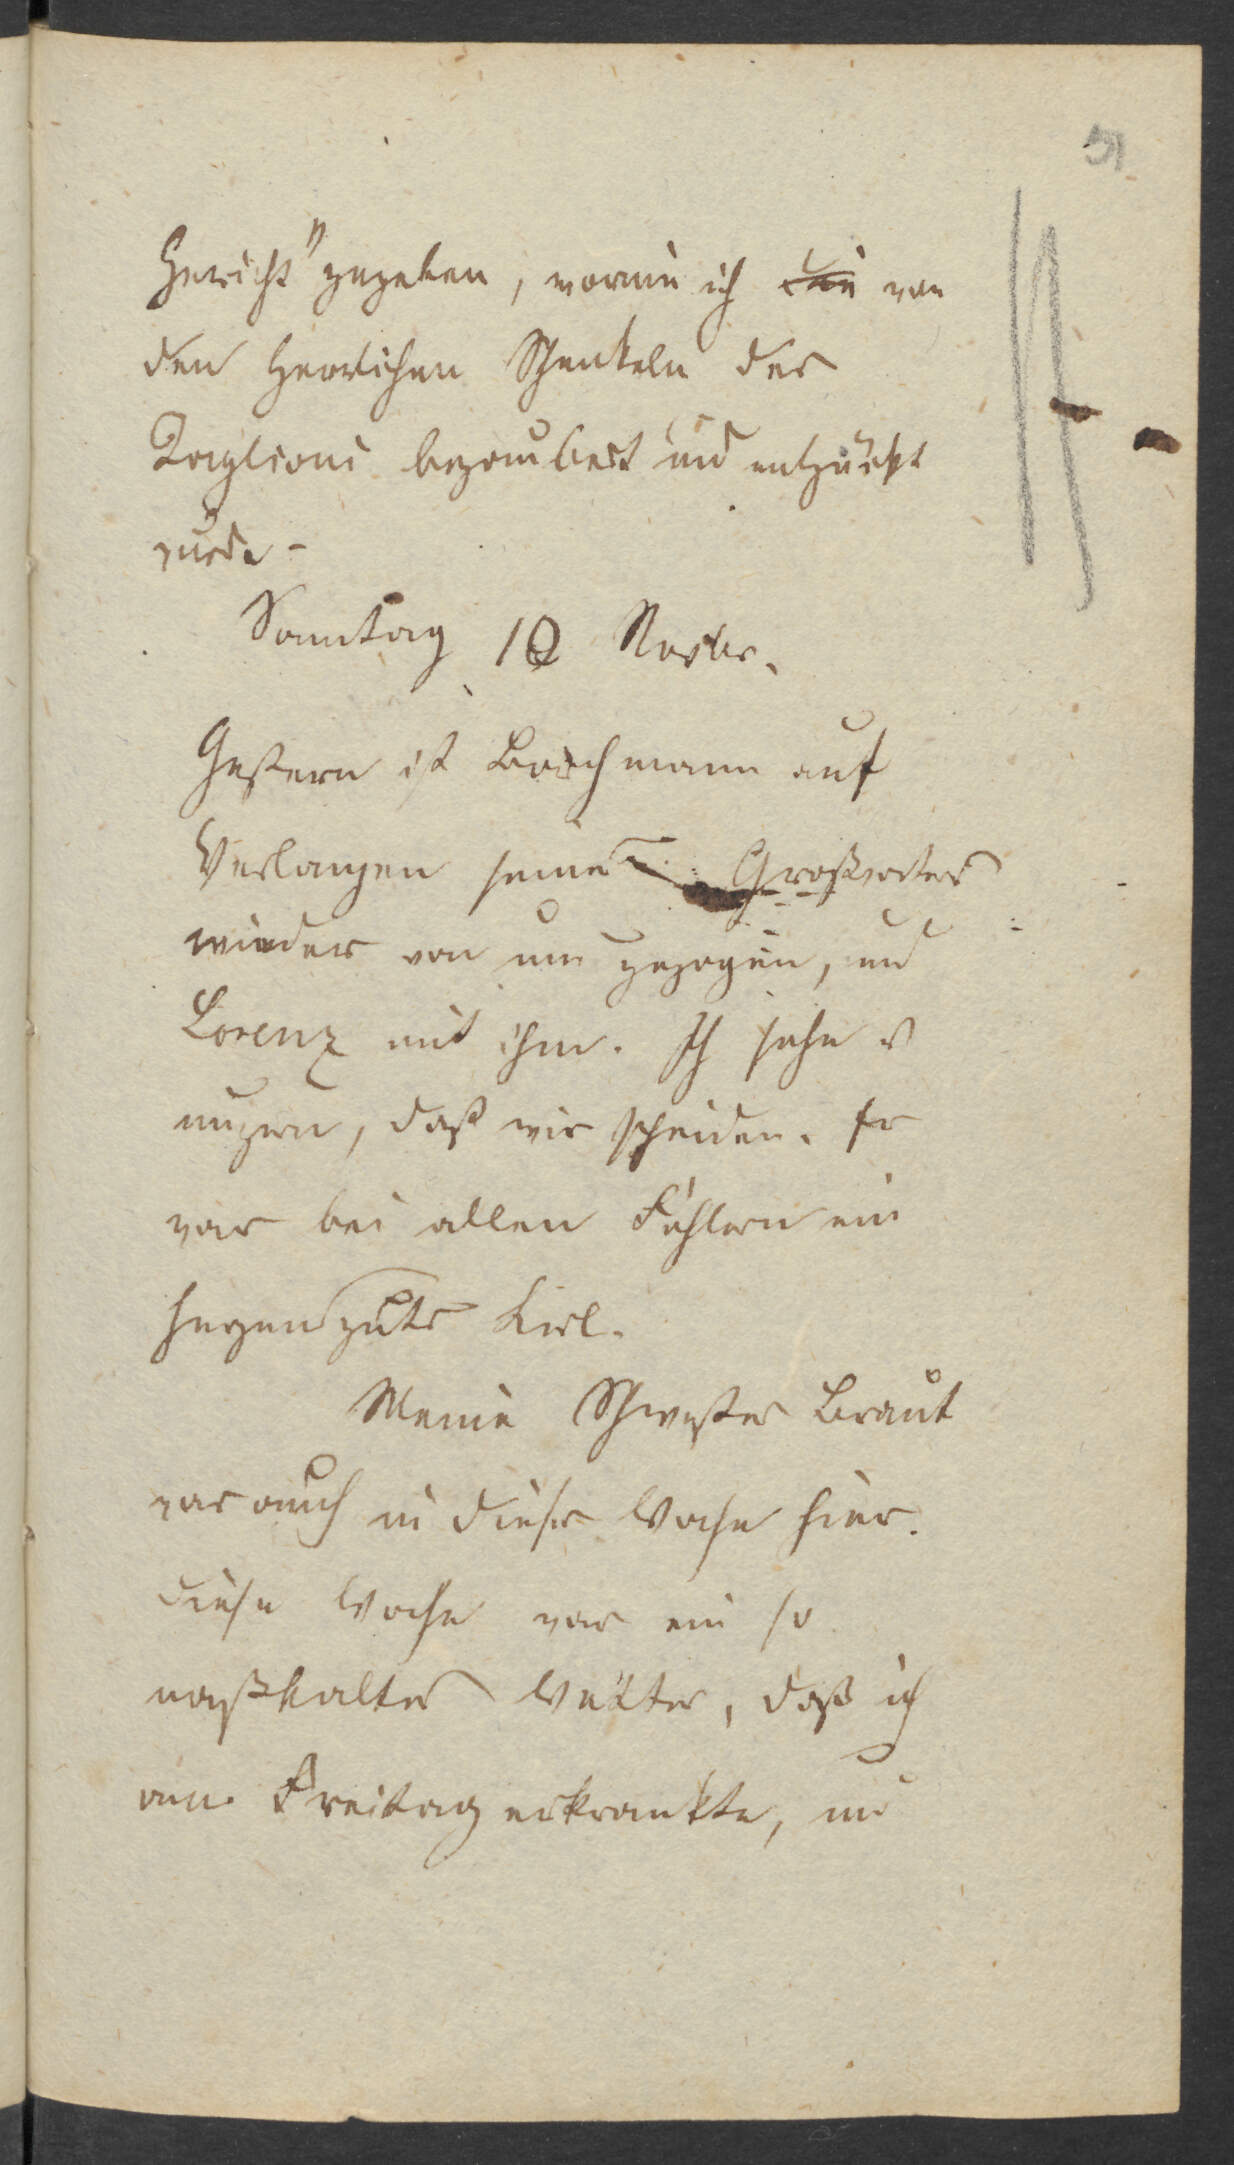 51
Gericht" gegeben, worin ich die von
den herrlichen Schenkeln der
Taglioni bezaubert und entzückt
wurde -
Sonntag 10 Novbr.
Gestern ist Borchmann auf
Verlangen seines Großvaters
wieder von uns gezogen, und
Lorenz mit ihm. Ich sehe es
ungern, daß wir scheiden. Er
war bei allen Fehlern ein
herzensguter Kerl.
Meine Schwester Braut
war auch in dieser Woche hier.
Diese Woche war ein so
naßkaltes Wetter, daß ich
am Freitag erkrankte, und